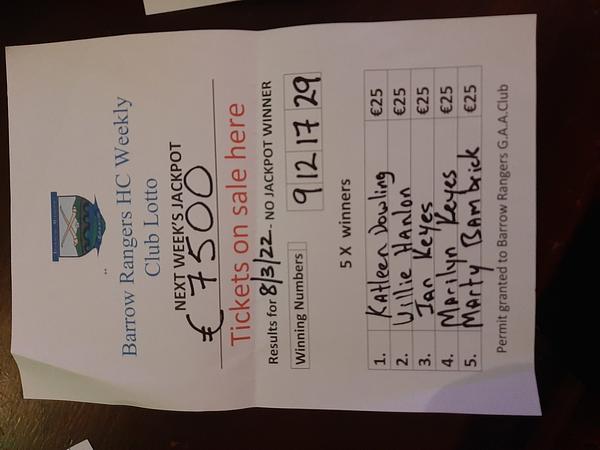 Barrow Rangers HC Weekly
Club Lotto
NEXT WEEK'S JACKPOT
€7500
Tickets on sale here
Results for 8/3/22 - NO JACKPOT WINNER
Winning Numbers 9 12 17 29
5 X winners
1. Kathleen Dowling €25
2. Willie Hanlon €25
3. Ian Keyes €25
4. Marilyn Keyes €25
5. Marty Bambrick €25
Permit granted to Barrow Rangers G.A.A.Club